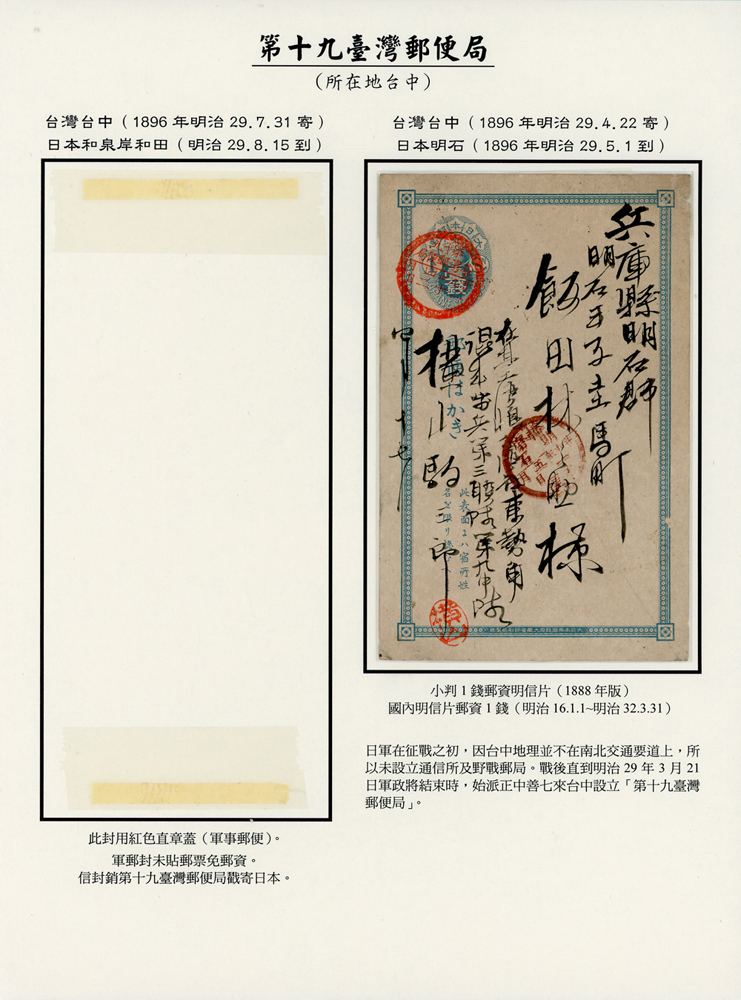 第十九臺灣郵便局
(所在地台中)
台灣台中(1896 年明治 29.7.31 寄)
日本和泉岸和田(明治 29.8.15 到)
台灣台中(1896 年明治 29.4.22 寄)
日本明石(1896 年明治 29.5.1 到)
兵庫縣明石郡
明石
飯田
樣
郵便はかき
第三聯隊第九中隊
此表面ニハ宿所姓
小判 1 錢郵資明信片(1888 年版)
國內明信片郵資 1 錢(明治 16.1.1~明治 32.3.31)
日軍在征戰之初,因台中地理並不在南北交通要道上,所
以未設立通信所及野戰郵局。戰後直到明治 29 年 3 月 21
日軍政將結束時,始派正中善七來台中設立「第十九臺灣
郵便局」。
此封用紅色直章蓋(軍事郵便)。
軍郵封未貼郵票免郵資。
信封銷第十九臺灣郵便局戳寄日本。